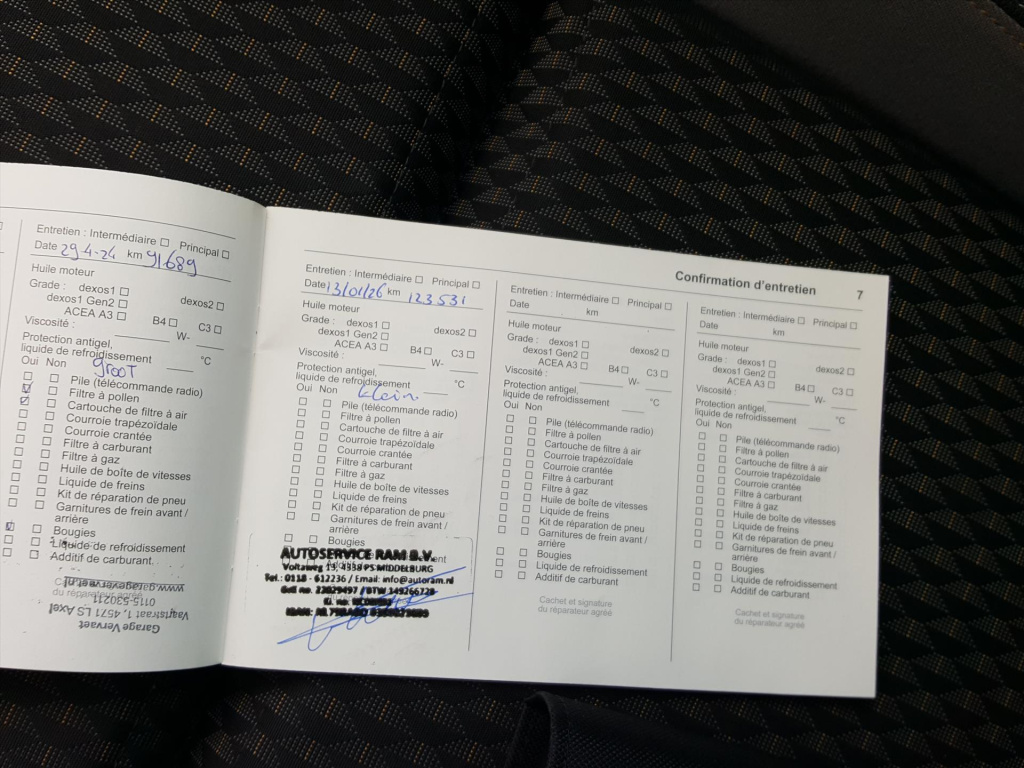 Entretien : Intermédiaire Principal
Date 29-4-24 km 91689
Huile moteur
Grade : dexos1 dexos2
dexos1 Gen2
ACEA A3 B4 C3
Viscosité : W-
Protection antigel,
liquide de refroidissement °C
Oui Non groot
Pile (télécommande radio)
Filtre à pollen
Cartouche de filtre à air
Courroie trapézoïdale
Courroie crantée
Filtre à carburant
Filtre à gaz
Huile de boîte de vitesses
Liquide de freins
Kit de réparation de pneu
Garnitures de frein avant /
arrière
Bougies
Liquide de refroidissement
Additif de carburant
Garage Vervaet
Vaartstraat 1, 4571 LS Axel
0115-530211
www.garagevervaet.nl
Confirmation d'entretien 7
Entretien : Intermédiaire Principal
Date 13/01/26 km 123531
Huile moteur
Grade : dexos1 dexos2
dexos1 Gen2
ACEA A3 B4 C3
Viscosité : W-
Protection antigel,
liquide de refroidissement °C
Oui Non klein
Pile (télécommande radio)
Filtre à pollen
Cartouche de filtre à air
Courroie trapézoïdale
Courroie crantée
Filtre à carburant
Filtre à gaz
Huile de boîte de vitesses
Liquide de freins
Kit de réparation de pneu
Garnitures de frein avant /
arrière
Bougies
AUTOSERVICE RAM B.V.
Voltaweg 13, 4338 PS MIDDELBURG
Tel.: 0118 - 612236 / Email: info@autoram.nl
Entretien : Intermédiaire Principal
Date km
Huile moteur
Grade : dexos1 dexos2
dexos1 Gen2
ACEA A3 B4 C3
Viscosité : W-
Protection antigel,
liquide de refroidissement °C
Oui Non
Pile (télécommande radio)
Filtre à pollen
Cartouche de filtre à air
Courroie trapézoïdale
Courroie crantée
Filtre à carburant
Filtre à gaz
Huile de boîte de vitesses
Liquide de freins
Kit de réparation de pneu
Garnitures de frein avant /
arrière
Bougies
Liquide de refroidissement
Additif de carburant
Cachet et signature
du réparateur agréé
Entretien : Intermédiaire Principal
Date km
Huile moteur
Grade : dexos1 dexos2
dexos1 Gen2
ACEA A3 B4 C3
Viscosité : W-
Protection antigel,
liquide de refroidissement °C
Oui Non
Pile (télécommande radio)
Filtre à pollen
Cartouche de filtre à air
Courroie trapézoïdale
Courroie crantée
Filtre à carburant
Filtre à gaz
Huile de boîte de vitesses
Liquide de freins
Kit de réparation de pneu
Garnitures de frein avant /
arrière
Bougies
Liquide de refroidissement
Additif de carburant
Cachet et signature
du réparateur agréé